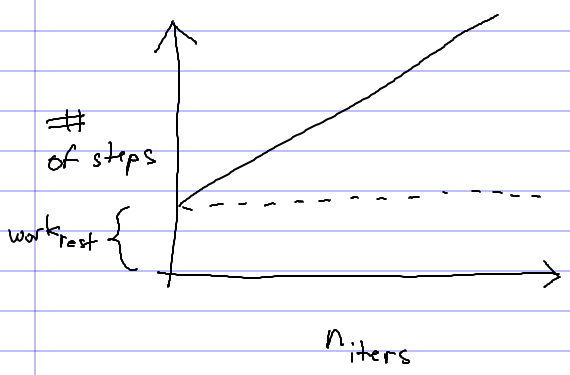 #
of steps
work_rest {
n_iters